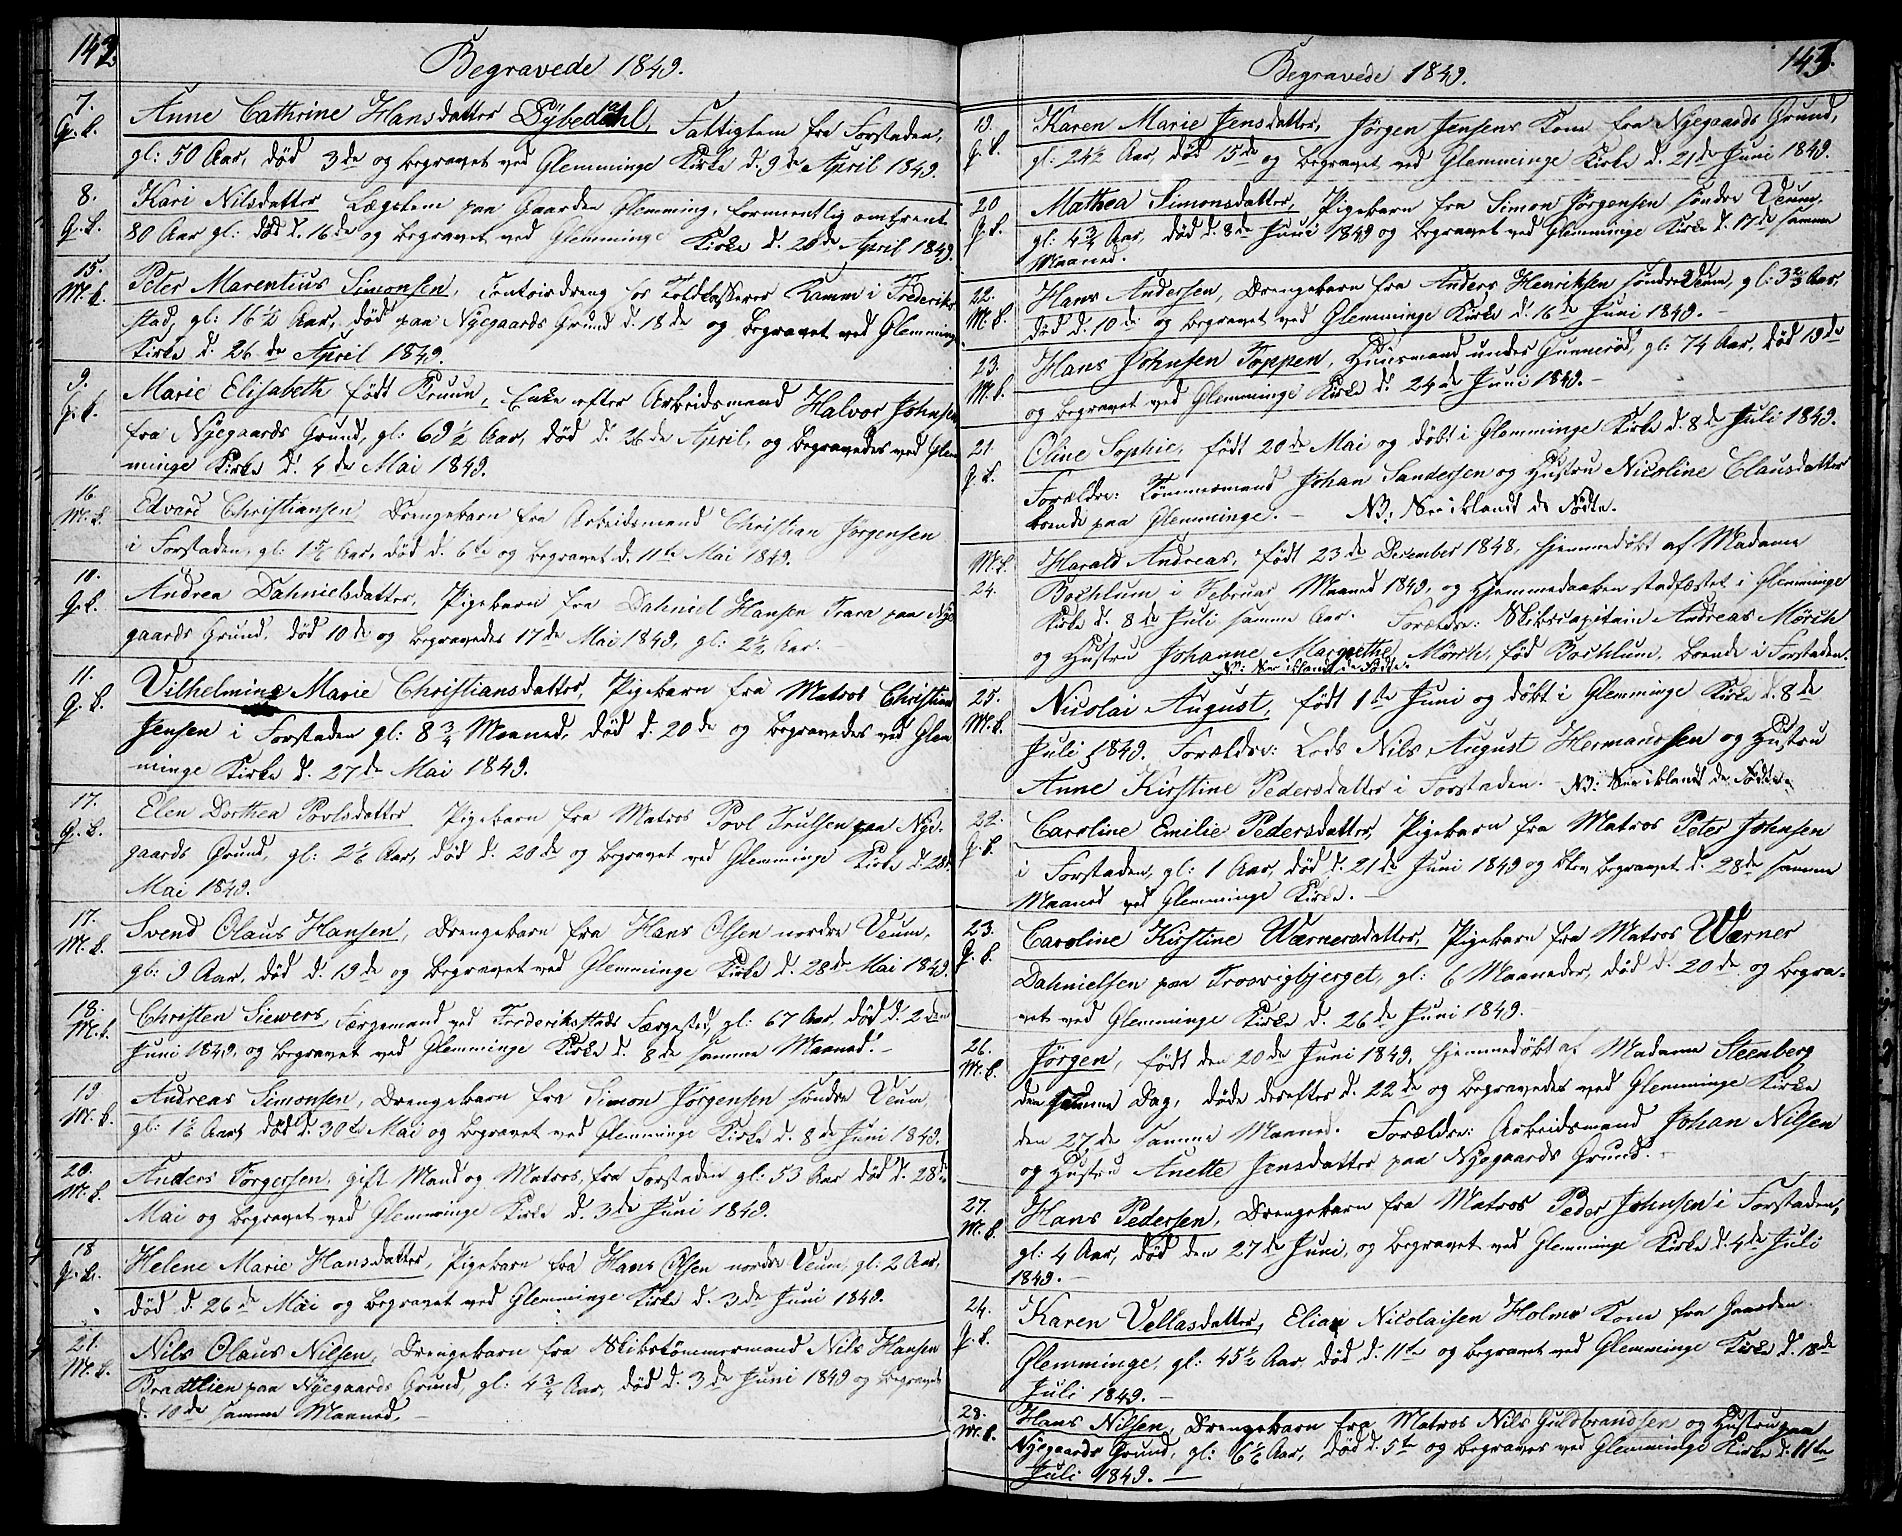 142
Begravede 1849.
7. Anne Cathrine Hansdatter Dÿbedahl, Fattiglem fra Forstaden,
Q. k. gl: 50 Aar, død 3de og begravet ved Glemminge Kirke d. 9de April 1849.
8. Kari Nilsdatter Lægslem paa Gaarden Glemming, formentlig omtrent
Q. k. 80 Aar gl: død d. 16de og begravet ved Glemminge Kirke d. 20de April 1849.
15. Peter Marentius Simonsen, Contoirdreng hos Toldkasserer Kamm i Frederik-
M. k. stad, gl: 16½ Aar, død paa Nyegaards Grund d. 18de og begravet ved Glemminge
Kirke d. 26de April 1849.
9. Marie Elisabeth født Kruun, Enke efter Arbeidsmand Halvor Johnsen
Q. k. fra Nyegaards Grund, gl: 69½ Aar, død d. 26de April, og begravedes ved Glem-
minge Kirke d. 4de Mai 1849.
16. Edvard Christiansen, Drengebarn fra Arbeidsmand Christian Jørgensen
M. k. i Forstaden, gl: Aar, død d. 6te og begravet d. 11te Mai 1849.
10. Andrea Dahnielsdatter, Pigebarn fra Dahniel Hansen Trara paa Nye-
Q. k. gaards Grund, død 10de og begravedes 17de Mai 1849, gl: 2½ Aar.
11. Vilhelmine Marie Christiansdatter, Pigebarn fra Matros Christian
Q. k. Jensen i Forstaden gl: 8¾ Maaned, død d. 20de og begravedes ved Glem-
minge Kirke d. 27de Mai 1849.
17. Elen Dorthea Povlsdatter Pigebarn fra Matros Povl Trulsen paa Nye-
Q. k. gaards Grund, gl: Aar, død d. 20de og begravet ved Glemminge Kirke d. 28de
Mai 1849.
17. Svend Olaus Hansen, Drengebarn fra Hans Olsen nordre Veum,
M. k. gl: 9 Aar, død d. 19de og begravet ved Glemminge Kirke d. 28de Mai 1849.
18. Christen Siewers Færgemand ved Frederiksstads Færgested, gl: 67 Aar, død d. 2den
M. k. Juni 1849, og begravet ved Glemminge Kirke d. 8de samme Maaned. –
19 Andreas Simonsen, Drengebarn fra Simon Jørgensen søndre Veum,
M. k. gl: 1½ Aar, død d. 30te Mai og begravet ved Glemminge Kirke d. 8de Juni 1849.
20. Anders Torgersen, gift Mand og Matros, fra Forstaden gl: 53 Aar død d. 28de
M. k. Mai og begravet ved Glemminge Kirke d. 3de Juni 1849.
18 Helene Marie Hansdatter, Pigebarn fra Hans Olsen nordre Veum, gl: 2 Aar,
Q. k. død d. 26de Mai og begravet ved Glemminge Kirke d. 3de Juni 1849.
21. Nils Olaus Nilsen, Drengebarn fra Skibstømmermand Nils Hansen
M. k. Bradtlien paa Nyegaards Grund, gl: 4¾ Aar, død d. 3de Juni 1849 og begravet
d. 10de samme Maaned. –
Begravede 1849.
143.
19. Karen Marie Jensdatter, Jörgen Jensens Kone fra Nyegaards Grund,
Q. k. gl: 24½ Aar, død 15de og begravet ved Glemminge Kirke d. 21de Juni 1849.
20 Mathea Simonsdatter, Pigebarn fra Simon Jörgensen søndre Veum,
Q. k. gl: 4¾ Aar, død d. 8de Juni 1849 og begravet ved Glemminge Kirke d. 17de samme
Maaned.
22. Hans Andersen, Drengebarn fra Anders Henriksen søndre Veum, gl: 3⅔ Aar,
M. k. død d. 10de og begravet ved Glemminge Kirke d. 16de Juni 1849. –
23. Hans Johnsen Toppen, Huusmand under Gunnerød, gl: 74 Aar, død 19de
M. k. og begravet ved Glemminge Kirke d. 24de Juni 1849. –
21. Oline Sophie, født 20de Mai og døbt i Glemminge Kirke d. 8de Juli 1849.
Q. k. Forældre: Tømmermand Johan Sandersen og Hustru Nicoline Clausdatter
boende paa Glemminge. – NB: See iblandt de Fødte.
M. k. Harald Andreas, født 23de December 1848, hjemmedøbt af Madame
24. Bochlum i Februar Maaned 1849, og Hjemmedaaben stadfæstet i Glemminge
Kirke d. 8de Juli samme Aar. Forældre: Skibscapitain Andreas Mörch
og Hustru Johanne Margrethe Mörch, fød Bochlum, boende i Forstaden.
NB: See iblandt de Fødte.
25. Nicolai August, født 1te Juni og døbt i Glemminge Kirke d. 8de
M. k. Juli 1849. Forældre: Lods Nils August Hermandsen og Hustru
Anne Kirstine Pedersdatter i Forstaden. NB: See iblandt de Fødte.
22. Caroline Emilie Pedersdatter, Pigebarn fra Matros Peter Johnsen
Q. k. i Forstaden, gl: 1 Aar, død d. 21de Juni 1849 og blev begravet d. 28de samme
Maaned ved Glemminge Kirke. –
23. Caroline Kirstine Wærnersdatter, Pigebarn fra Matros Wærner
Q. k. Dahnielsen paa Trosvigbjerget, gl: 6 Maaneder, død d. 20de og begra-
vet ved Glemminge Kirke d. 26de Juni 1849.
26. Jörgen, født den 20de Juni 1849, hjemmedøbt af Madame Steenberg
M. k. den samme Dag, døde derefter d. 22de og begravedes ved Glemminge Kirke
den 27de samme Maaned. Forældre: Arbeidsmand Johan Nilsen
og Hustru Anette Jensdatter paa Nyegaards Grund. –
27. Hans Pedersen, Drengebarn fra Matros Peder Johnsen i Forstaden,
M. k. gl: 4 Aar, død den 27de Juni, og begravet ved Glemminge Kirke d. 4de Juli
1849. –
24. Karen Vellasdatter, Elias Nicolaisen Holms Kone fra Gaarden
Q. k. Glemminge, gl: 45½ Aar, død d. 11te og begravet ved Glemminge Kirke d. 18de
Juli 1849. –
28. Hans Nilsen, Drengebarn fra Matros Nils Guldbrandsen og Hustru paa
M. k. Nyegaards Grund, gl: Aar, død d. 5te og begraves ved Glemminge Kirke d. 11te
Juli 1849. –